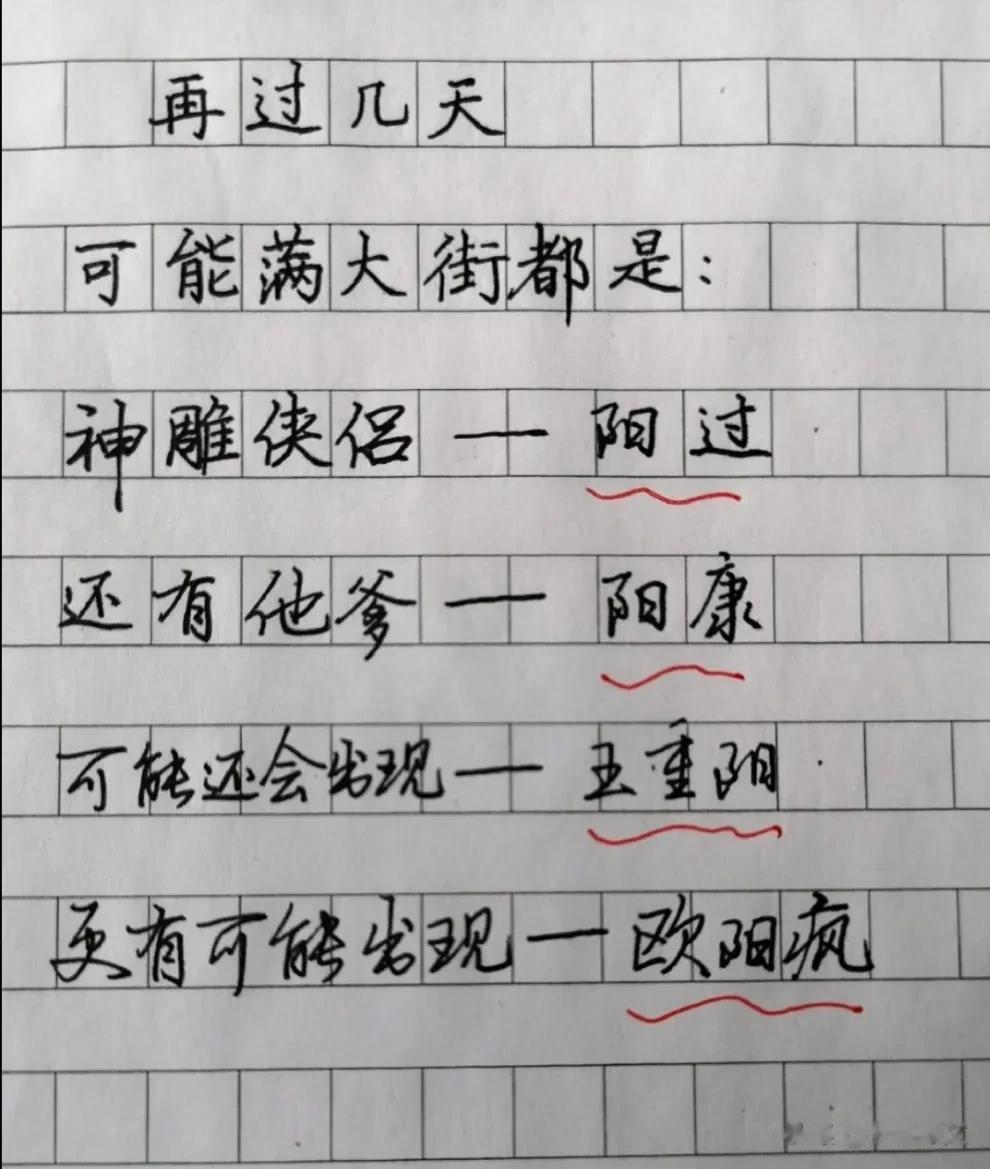 再过几天
可能满大街都是：
神雕侠侣——阳过
还有他爹——阳康
可能还会出现——王重阳
更有可能出现——欧阳疯